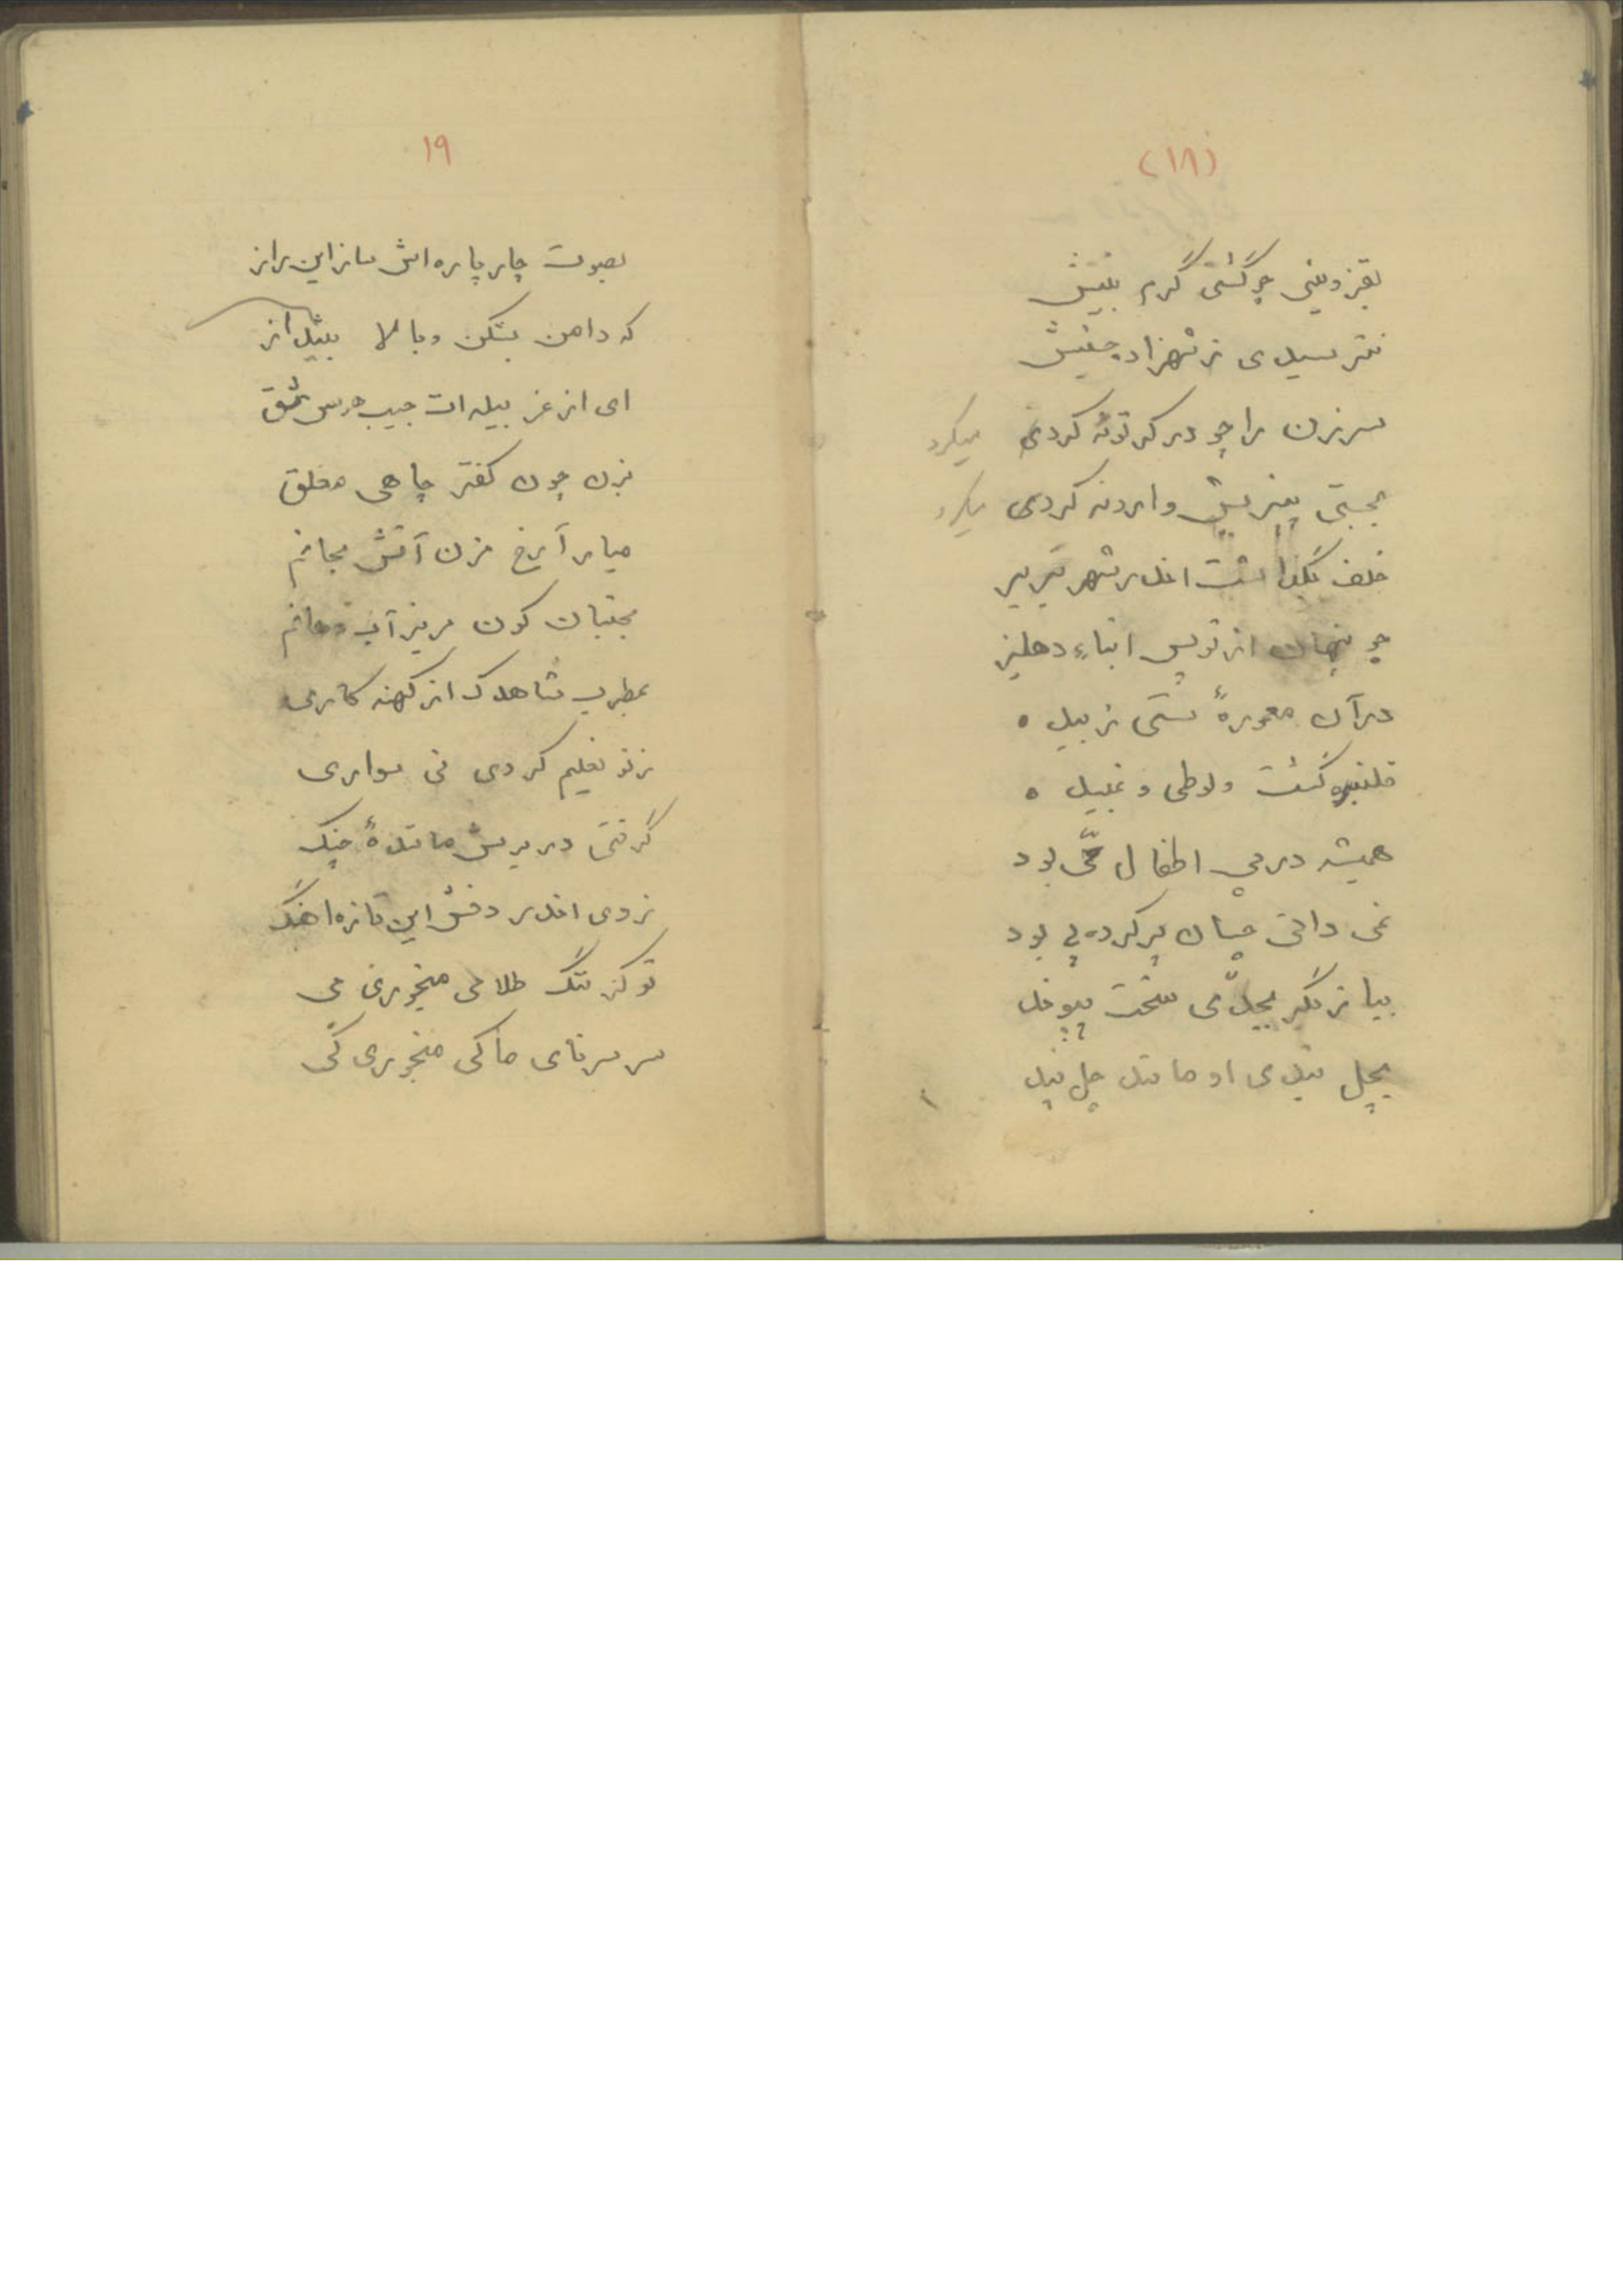 (۱۸)
بقزوینی چو گشتی گرم بینش
نترسیدی ز شهزاد چنینش
سرزن را چو در کرتونه کردی میکرد
بجستی وارونه کردی میکرد
خلف نگذاشت اندر شهر تبریز
چو پنهان از توپس انبار دهلیز
در آن معمورهٔ مستی ز بیل ه
قلندره گشت و لوطی و غبیل ه
همیشه در پی اطفال حی بود
نمی دانی چسان پر کرده پی بود
بیا ز مگر بچل ی سخت پیوند
بچل بندی او مانند چل بند
۱۹
بصوت چار پاره اش ساز این راز
که دامن بشکن و بالا بینداز
ای از غربیله ات جیب درس مشق
بزن چون کفتر چاهی معلق
میار آرخ مزن آتش بجانم
بجنبان کون مریز آب دهانم
بمطرب شاهدک از کهنه کاری
ز نو تعلیم کردی نی سواری
گرفتی در برش مانندهٔ چنگ
زدی اندر دفش این تازه اهنگ
تو کز تنگ طلا می میخوری می
سر سرنای ما کی میخوری کی